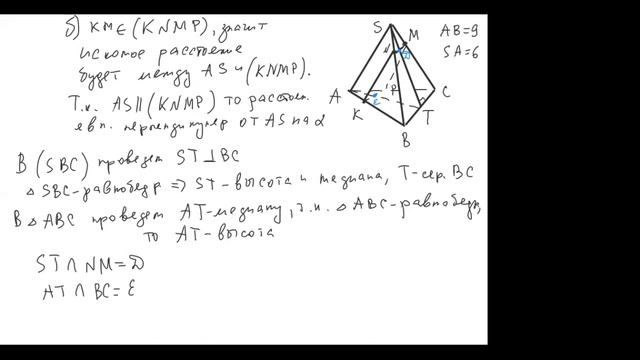 б) KM∈(KNMP), значит
искомое расстоение
будет между AS и (KNMP).
Т.к. AS∥(KNMP) то расстоен.
явл. перпендикуляр от AS на α
В (SBC) проведем ST⊥BC
△SBC-равнобедр ⇒ ST-высота и медиана, T-сер. BC
В △ABC проведем AT-медиану, т.к. △ABC-равнобедр,
то AT-высота
ST∩NM=D
AT∩BC=E
AB=9
SA=6
S
M
N
D
A
P
C
K
E
T
B